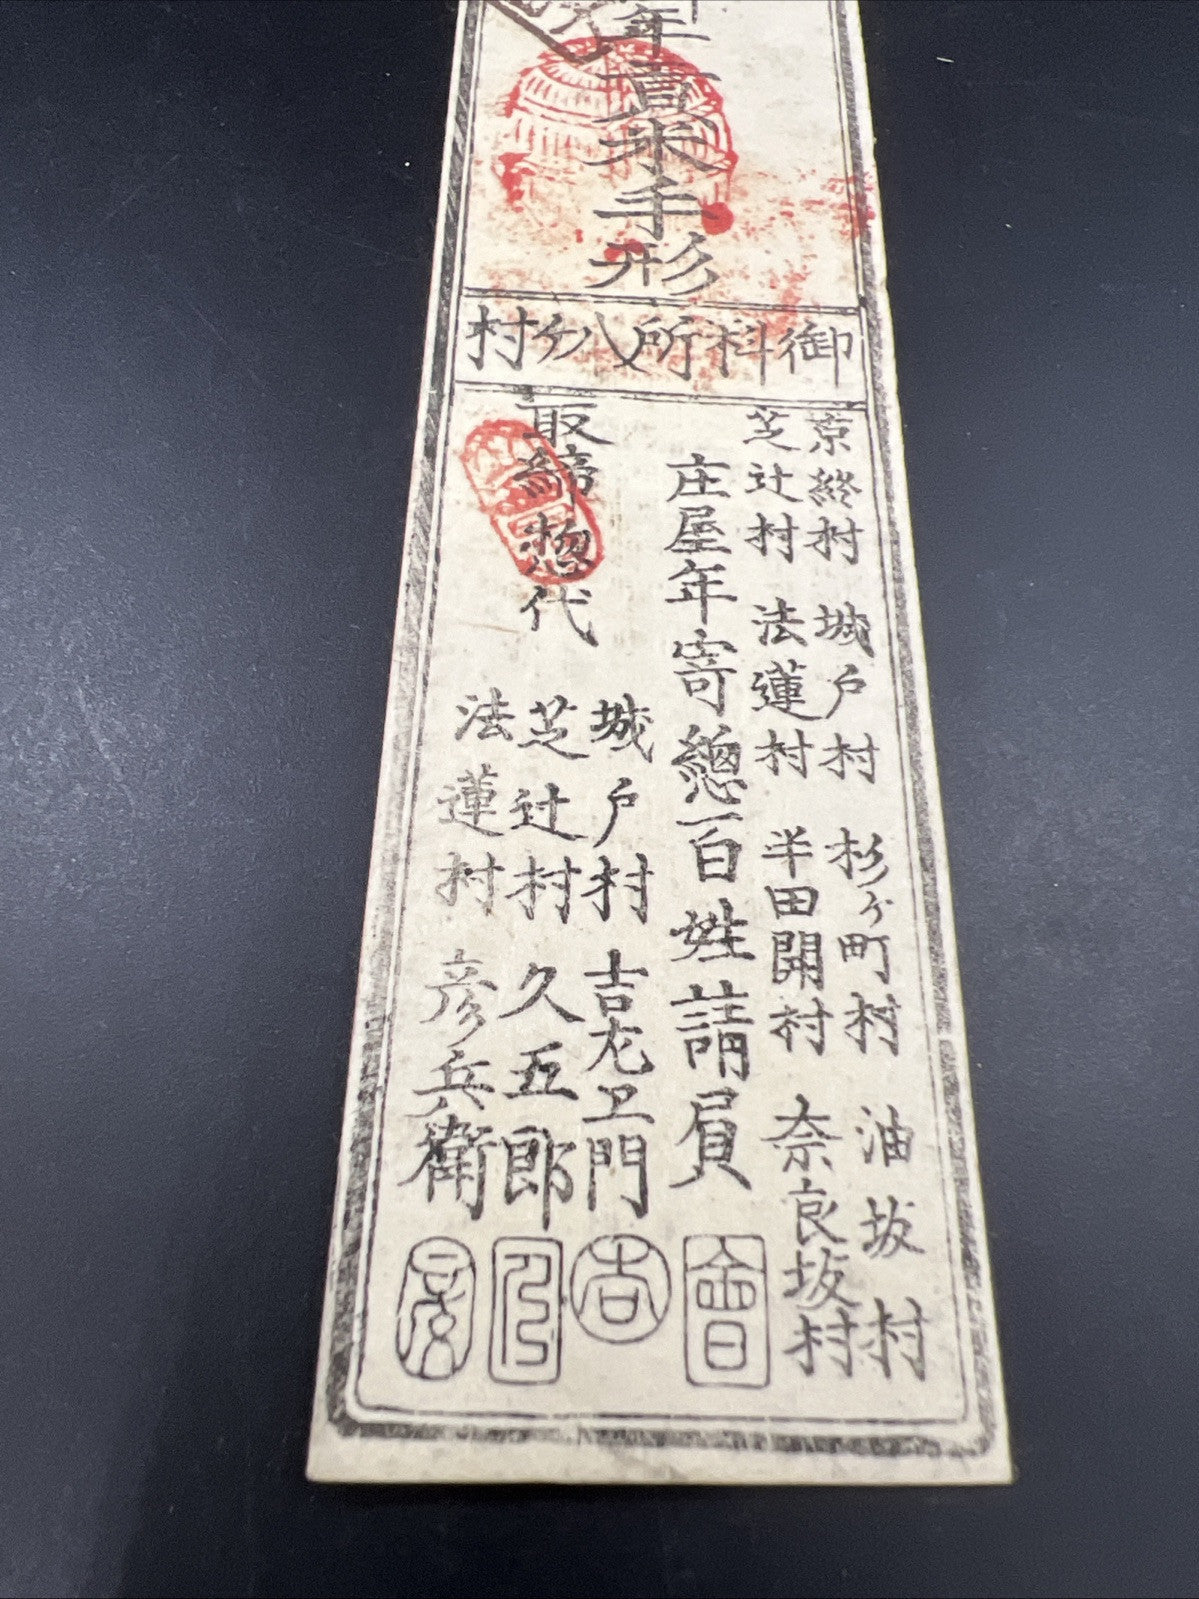 年貢米手形
御料所八ケ村
京終村 城戸村 杉ケ町村 油坂村
芝辻村 法蓮村 半田開村 奈良坂村
庄屋年寄總百姓請負
會
取締惣代
城戸村 吉左卫門
吉
芝辻村 久五郎
法蓮村 彦兵衛